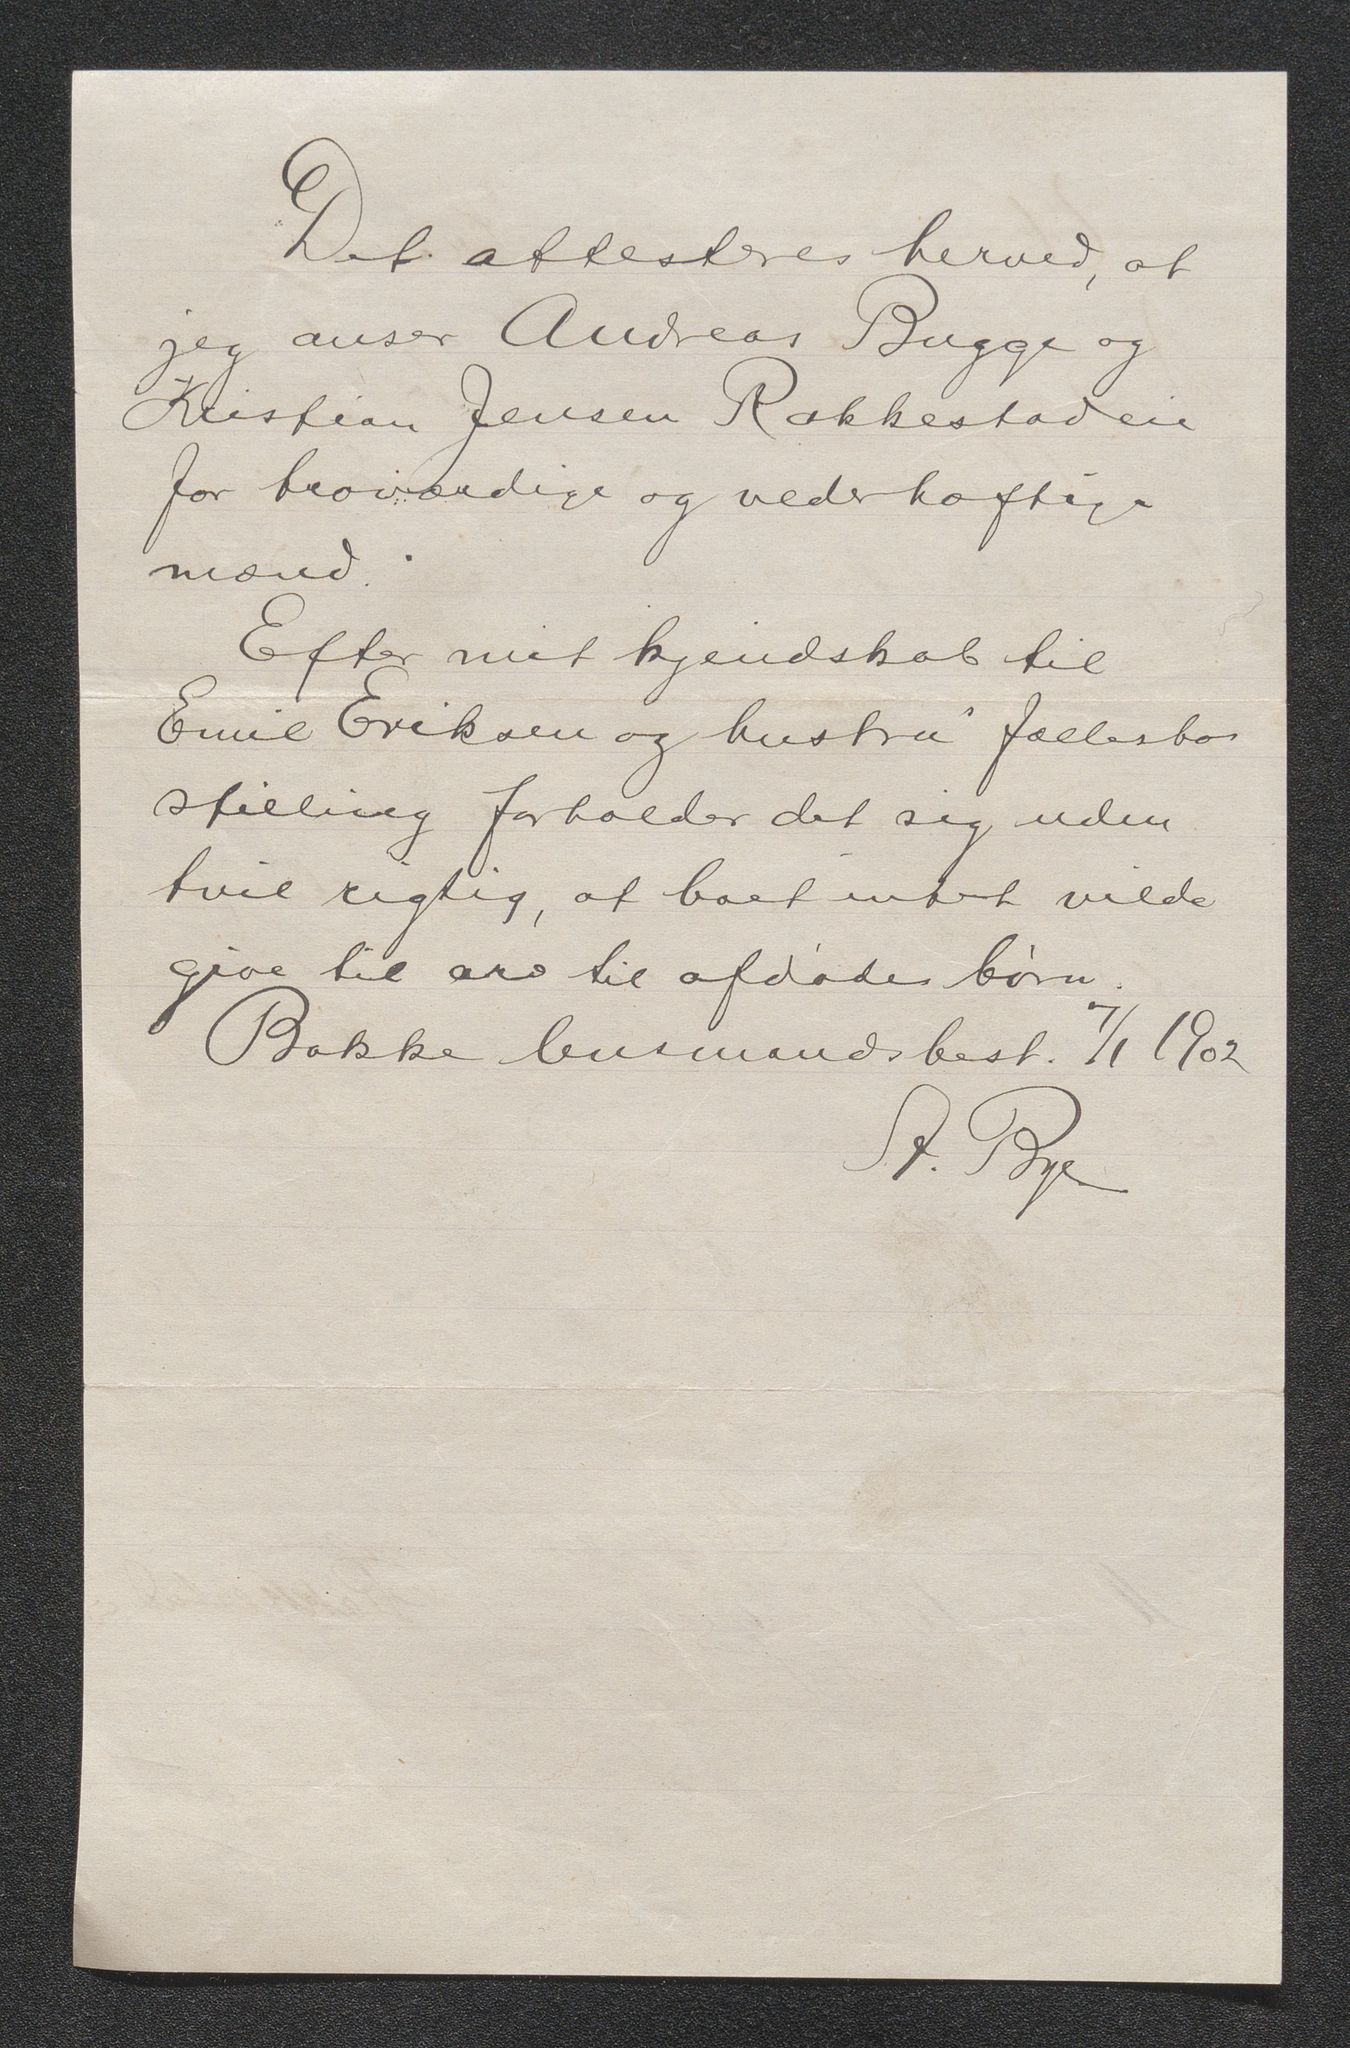 Det attesteres herved, at
jeg anser Andreas Bugge og
Kristian Jensen Rakkestadeie
for troværdige og vederhæftige
mænd.
Efter mit kjendskab til
Emil Eriksen og hustru's fællesbos
stilling forholder det sig uden
tvil rigtig, at boet intet vilde
give til arv til afdødes børn.
Bakke lensmandsbest. 7/1 1902
St. Bye